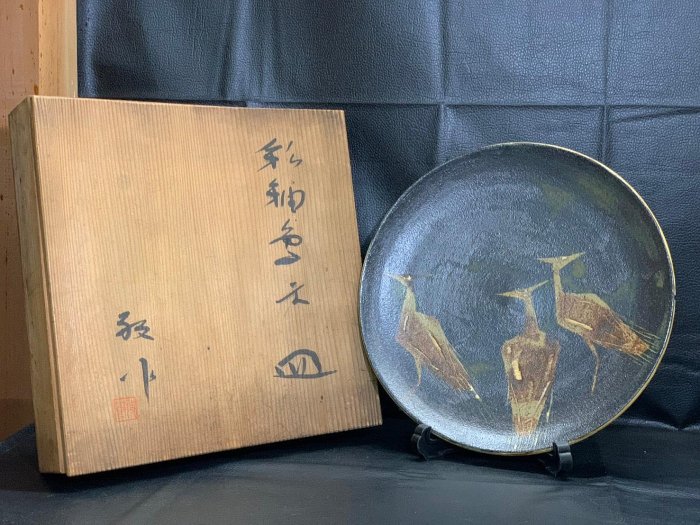 彩釉鳥文皿
敏作